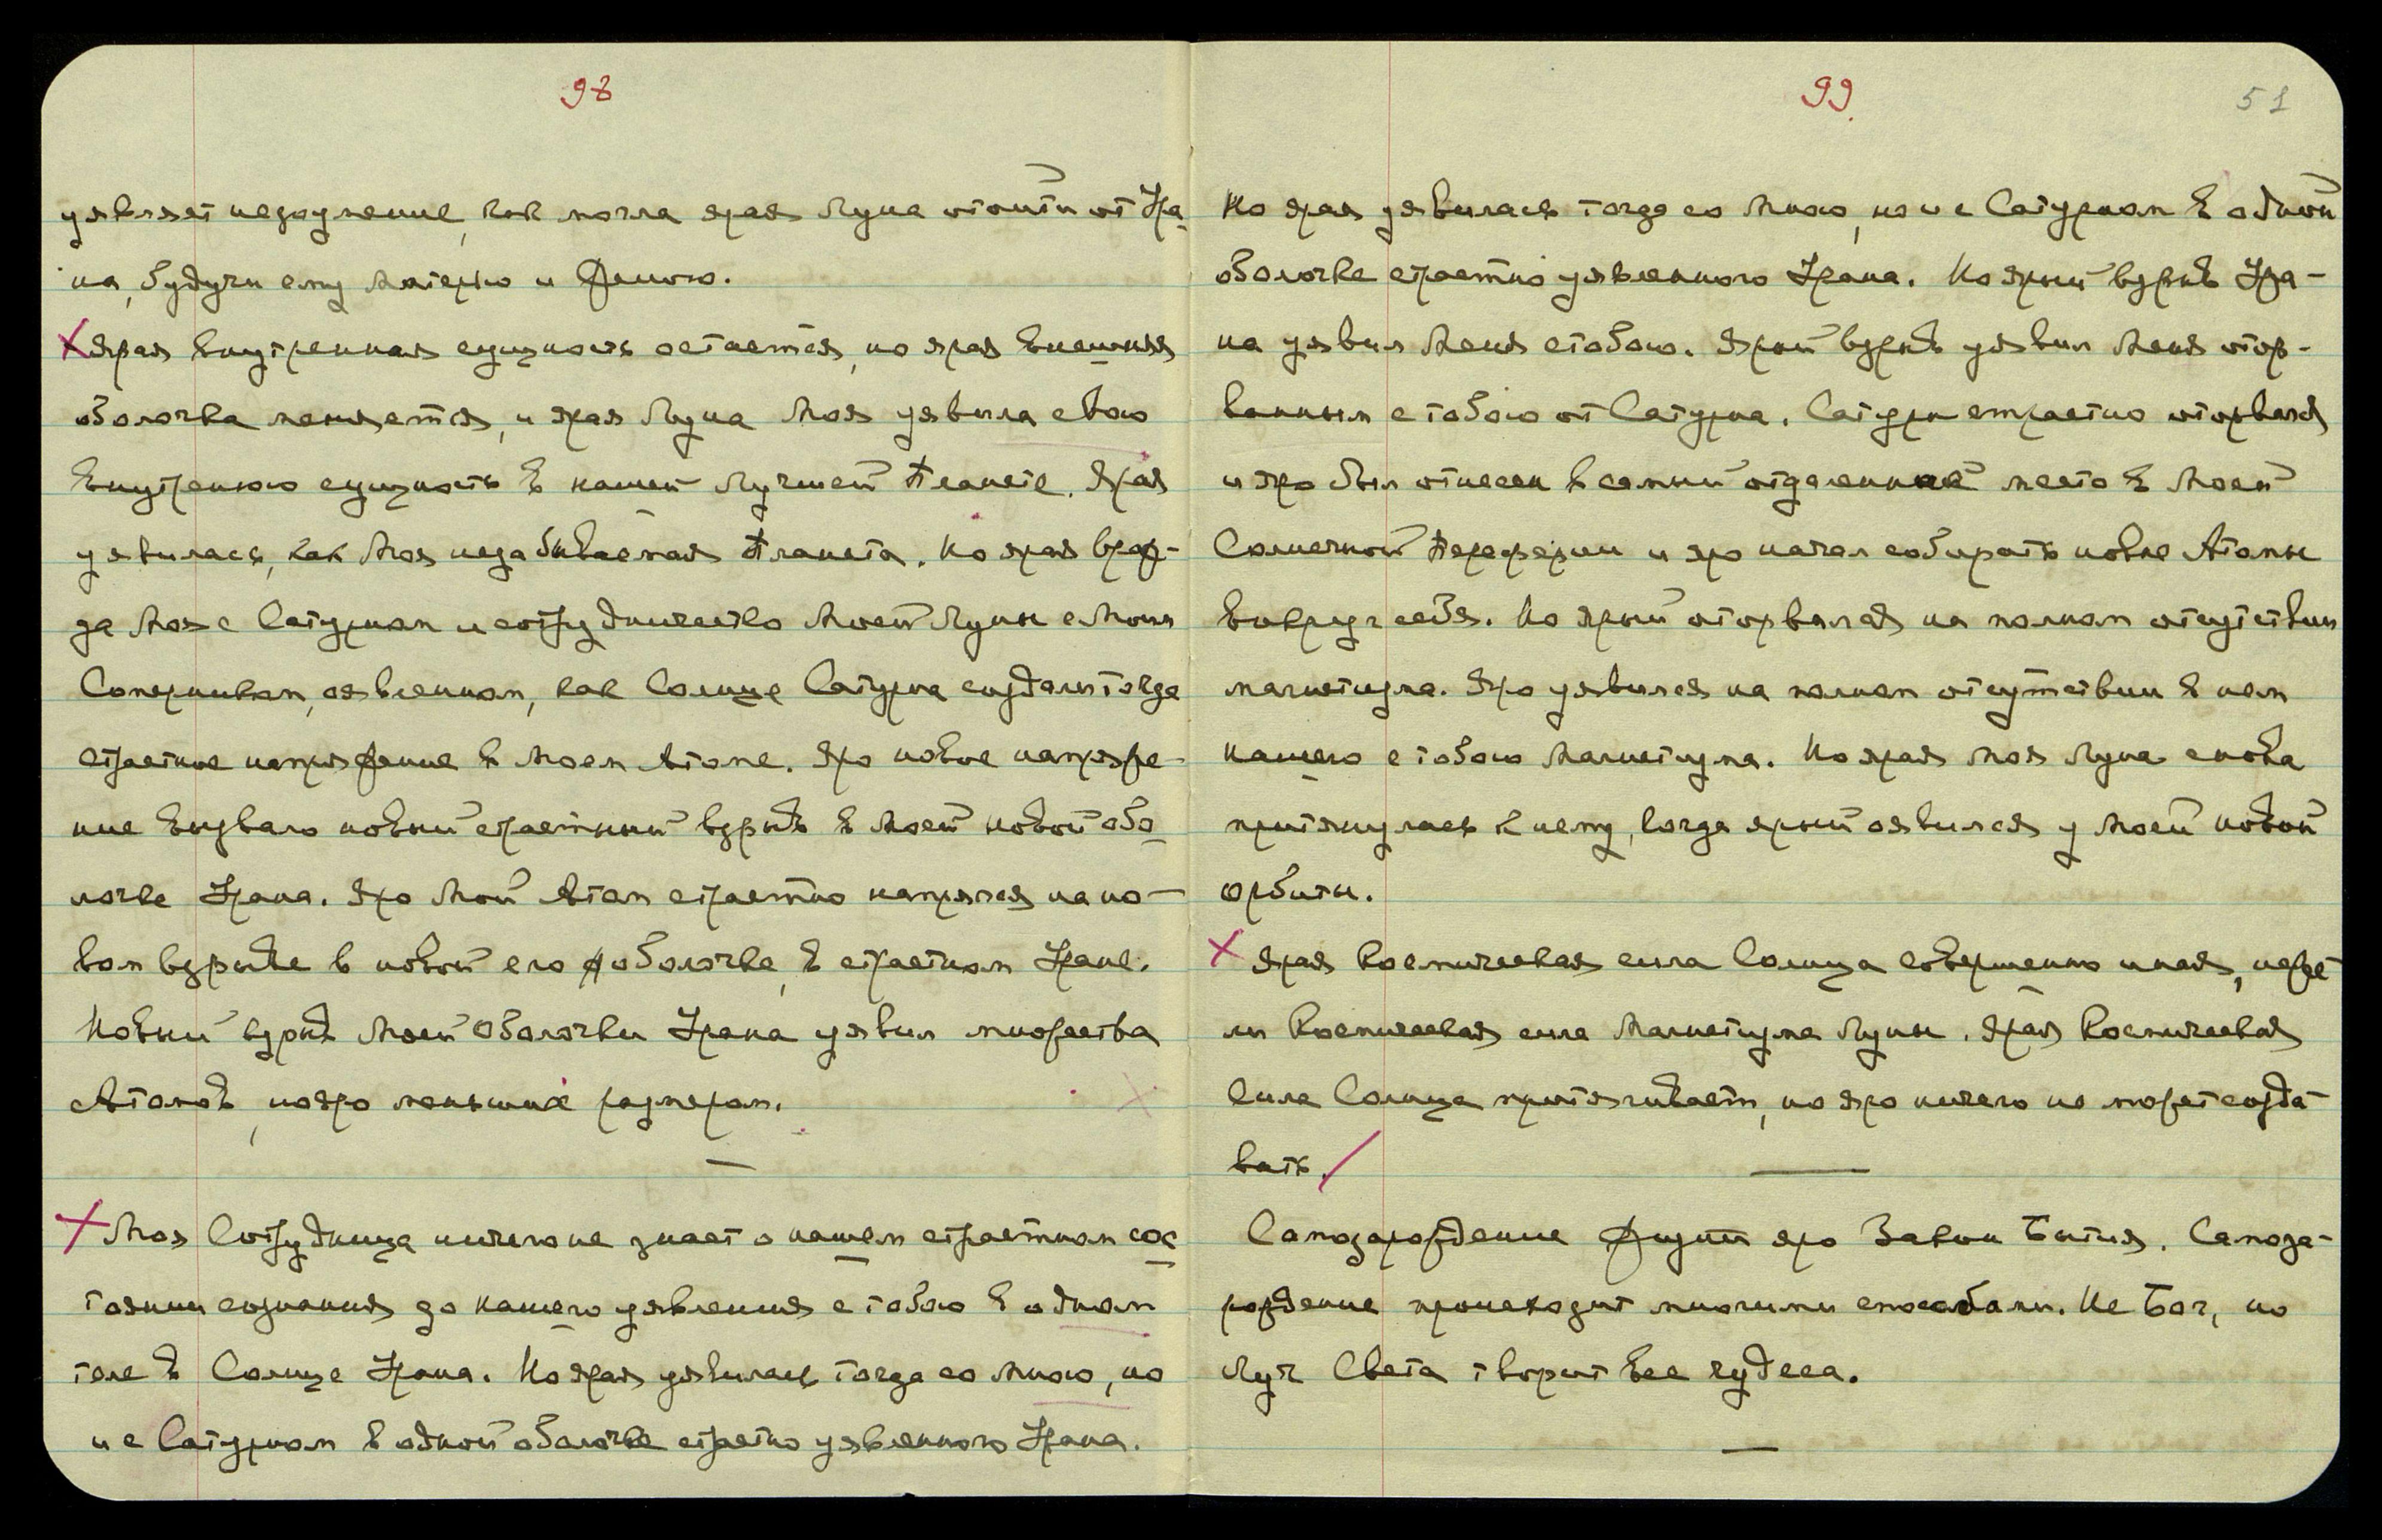 98
уявляет недоумение, как могла ярая Луна отойти от Ура-
на, будучи ему Матерью и Женою.
Ярая внутренняя сущность остается, но ярая внешняя
оболочка меняется, и ярая Луна Моя уявила свою
внутреннюю сущность в нашей Лучшей Планете. Ярая
уявилась, как Моя незабываемая Планета. Но ярая враж-
да Моя с Сатурном и сотрудничество Моей Луны с Моим
Соперником, оявленном, как Солнце Сатурна создали тогда
страстное напряжение в Моем Атоме. Яро новое напряже-
ние вызвало новый страстный взрыв в Моей новой обо
лочке Урана. Яро Мой Атом страстно напрягся на но-
вом взрыве в новой его оболочке, в страстном Уране.
Новый взрыв Моей Оболочки Урана уявил множества
Атомов, но яро меньших размером.
Моя Сотрудница ничего не знает о нашем страстном сос
тоянии сознания до нашего уявления с тобою в одном
теле в Солнце Урана. Но ярая уявилась тогда со Мною, но
и с Сатурном в одной оболочке страстно уявленного Урана.
99
51
Но ярая уявилась тогда со Мною, но и с Сатурном в одной
оболочке страстно уявленного Урана. Но ярый взрыв Ура-
на уявил Меня с тобою. Ярый взрыв уявил Меня отор-
ванным с тобою от Сатурна. Сатурн страстно оторвался
и яро был отнесен в самый отдаленный место в Моей
Солнечной Переферии и яро начал собирать новые Атомы
вокруг себя. Но ярый оторвался на полном отсутствии
магнетизма. Яро уявился на полном отсутствии в нем
нашего с тобою Магнетизма. Но ярая Моя Луна снова
притянулась к нему, когда ярый оявился у Моей новой
орбиты.
Ярая Космическая сила Солнца совершенно иная, неже
ли Космическая сила Магнетизма Луны. Ярая Космическая
Сила Солнца притягивает, но яро ничего не может созда
вать.
Самозарождение яро Закон Бытия. Самоза-
рождение происходит многими способами. Не Бог, но
Луч Света творит все чудеса.